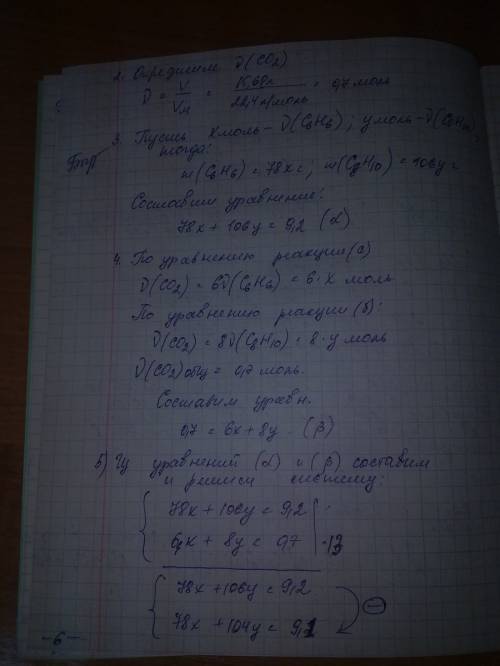 2. Определим ν(CO2)
ν = V/Vм = 15,68л/22,4 л/моль = 0,7 моль
3. Пусть x моль - ν(C6H6); y моль - ν(C8H10),
тогда:
m(C6H6) = 78x г; m(C8H10) = 106y г
Составим уравнение:
78x + 106y = 9,2 (α)
4. По уравнению реакции (а)
ν(CO2) = 6ν(C6H6) = 6·x моль
По уравнению реакции (б):
ν(CO2) = 8ν(C8H10) = 8·y моль
ν(CO2)общ = 0,7 моль.
Составим уравн.
0,7 = 6x + 8y (β)
5) Из уравнений (α) и (β) составим
и решим систему:
78x + 106y = 9,2
6x + 8y = 0,7 | ·13
78x + 106y = 9,2
78x + 104y = 9,1
-6-